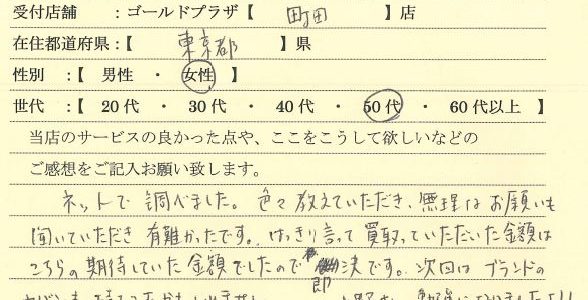 受付店舗 :ゴールドプラザ【 町田 】店
在住都道府県:【 東京都 】県
性別 :【 男性 ・ 女性 】
世代 :【 20代 ・ 30代 ・ 40代 ・ 50代 ・ 60代以上 】
当店のサービスの良かった点や、ここをこうして欲しいなどの
ご感想をご記入お願い致します。
ネットで調べました。色々教えていただき、無理なお願いも
聞いていただき有難かったです。はっきり言って買取っていただいた金額は
こちらの期待していた金額でしたので即決です。次回はブランドの